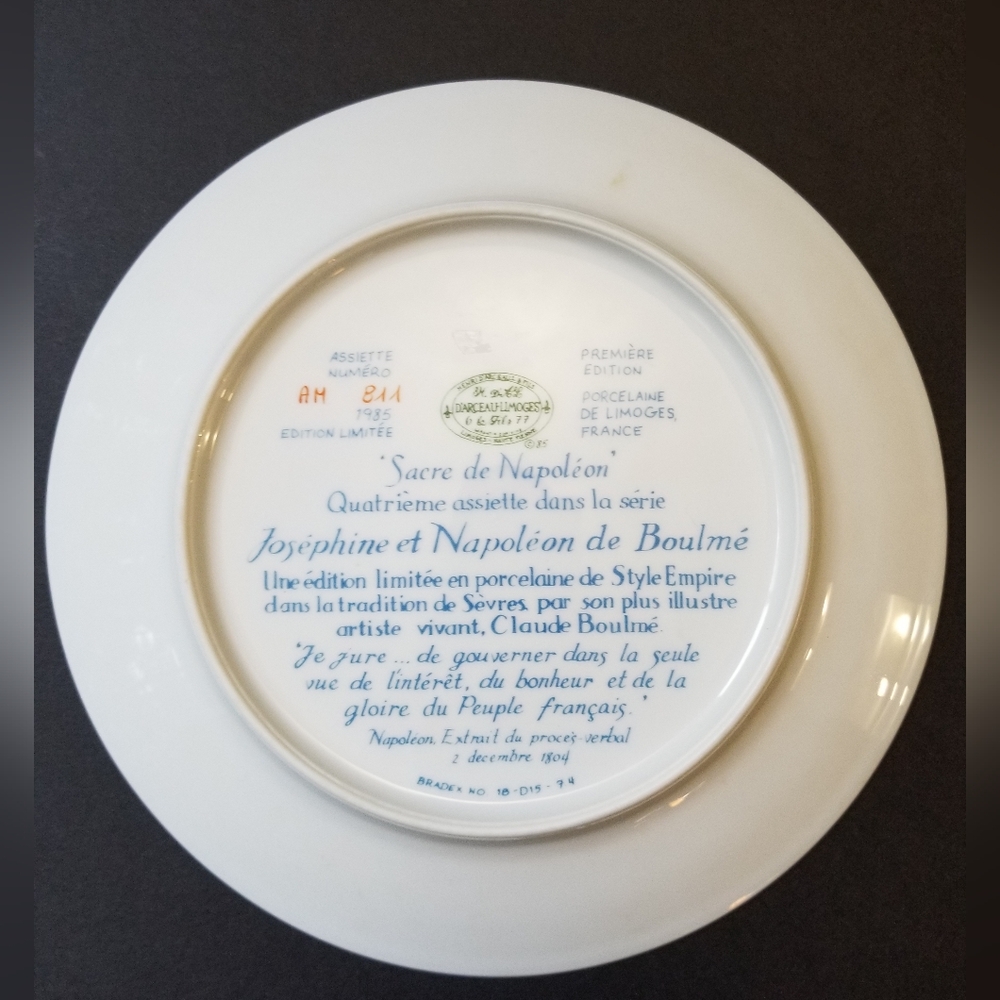 ASSIETTE
NUMÉRO
AM 811
1985
EDITION LIMITÉE
D'ARCEAU-LIMOGES
© 85
PREMIÈRE
EDITION
PORCELAINE
DE LIMOGES,
FRANCE
'Sacre de Napoléon'
Quatrième assiette dans la série
Joséphine et Napoléon de Boulmé
Une édition limitée en porcelaine de Style Empire
dans la tradition de Sèvres, par son plus illustre
artiste vivant, Claude Boulmé.
'Je jure ... de gouverner dans la seule
vue de l'intérêt, du bonheur et de la
gloire du Peuple français.'
Napoléon, Extrait du procès-verbal
2 decembre 1804
BRADEX NO 18-D15-7.4